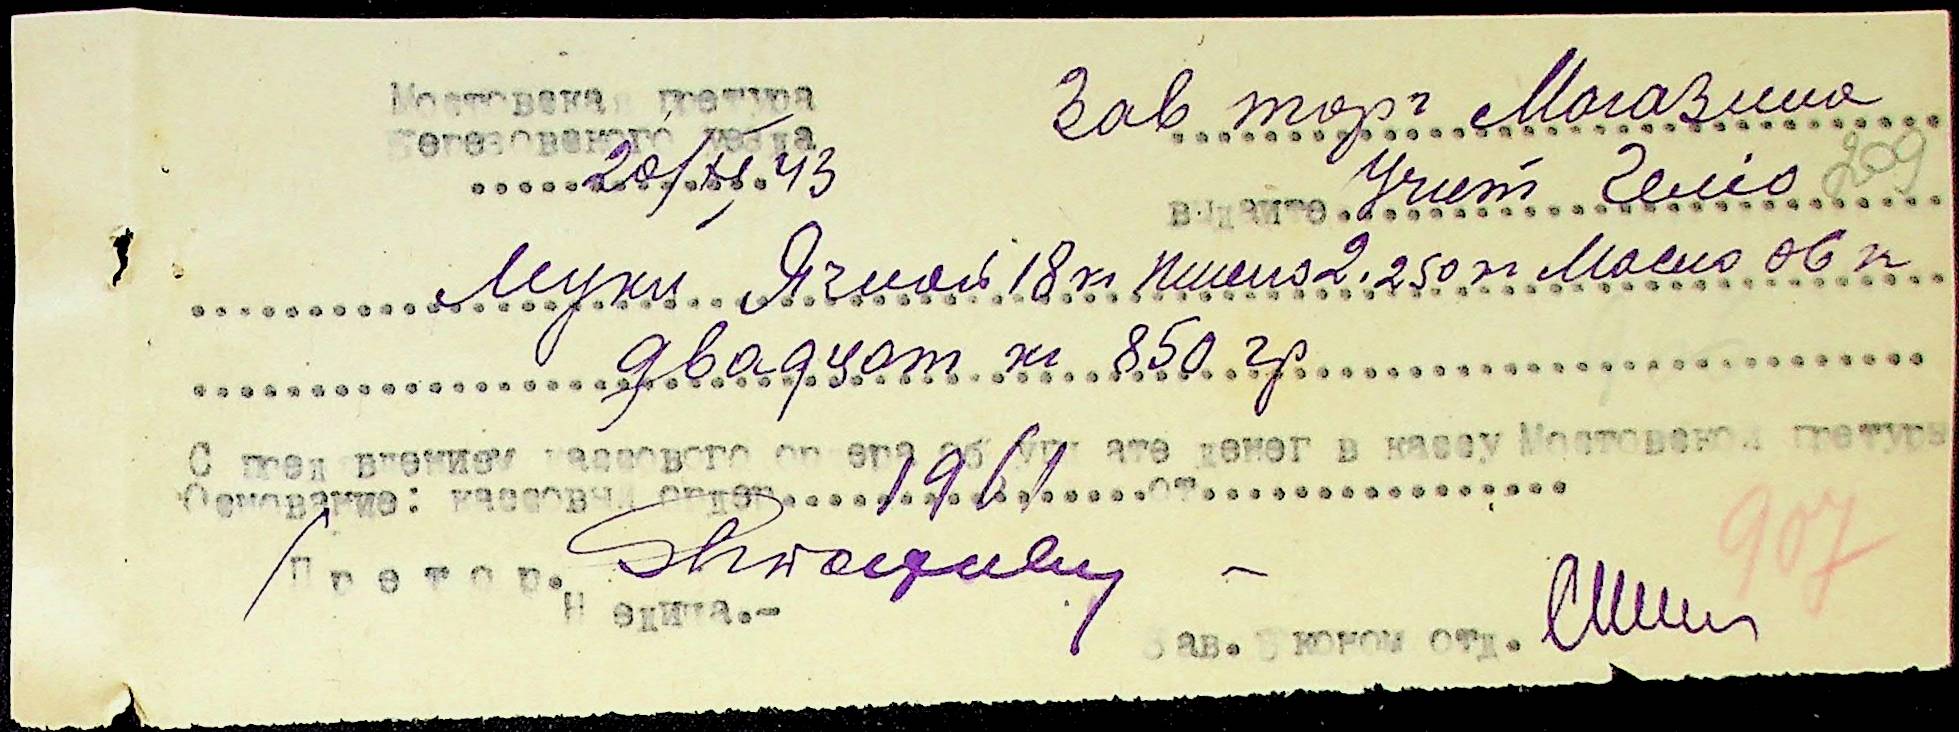 Мостовска претура
Березовского уезда
20/XI 43
Зав торг Магазина
209
выдайте Учит Гелю
Муки Ячной 18 кг Пшено 2.250 кг Масло 06 к
двадцат кг 850 гр
С пред влением кассового ордера об уплате денег в кассу Мостовской претуры
Основание: кассовый ордер 1961 от
Претор.
Н едича.-
907
Зав. Эконом отд.